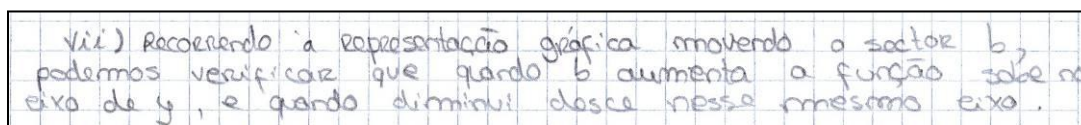 vii) Recorrendo à representação gráfica movendo o sector b,
podemos verificar que quando b aumenta a função sobe no
eixo de y, e quando diminui desce nesse mesmo eixo.